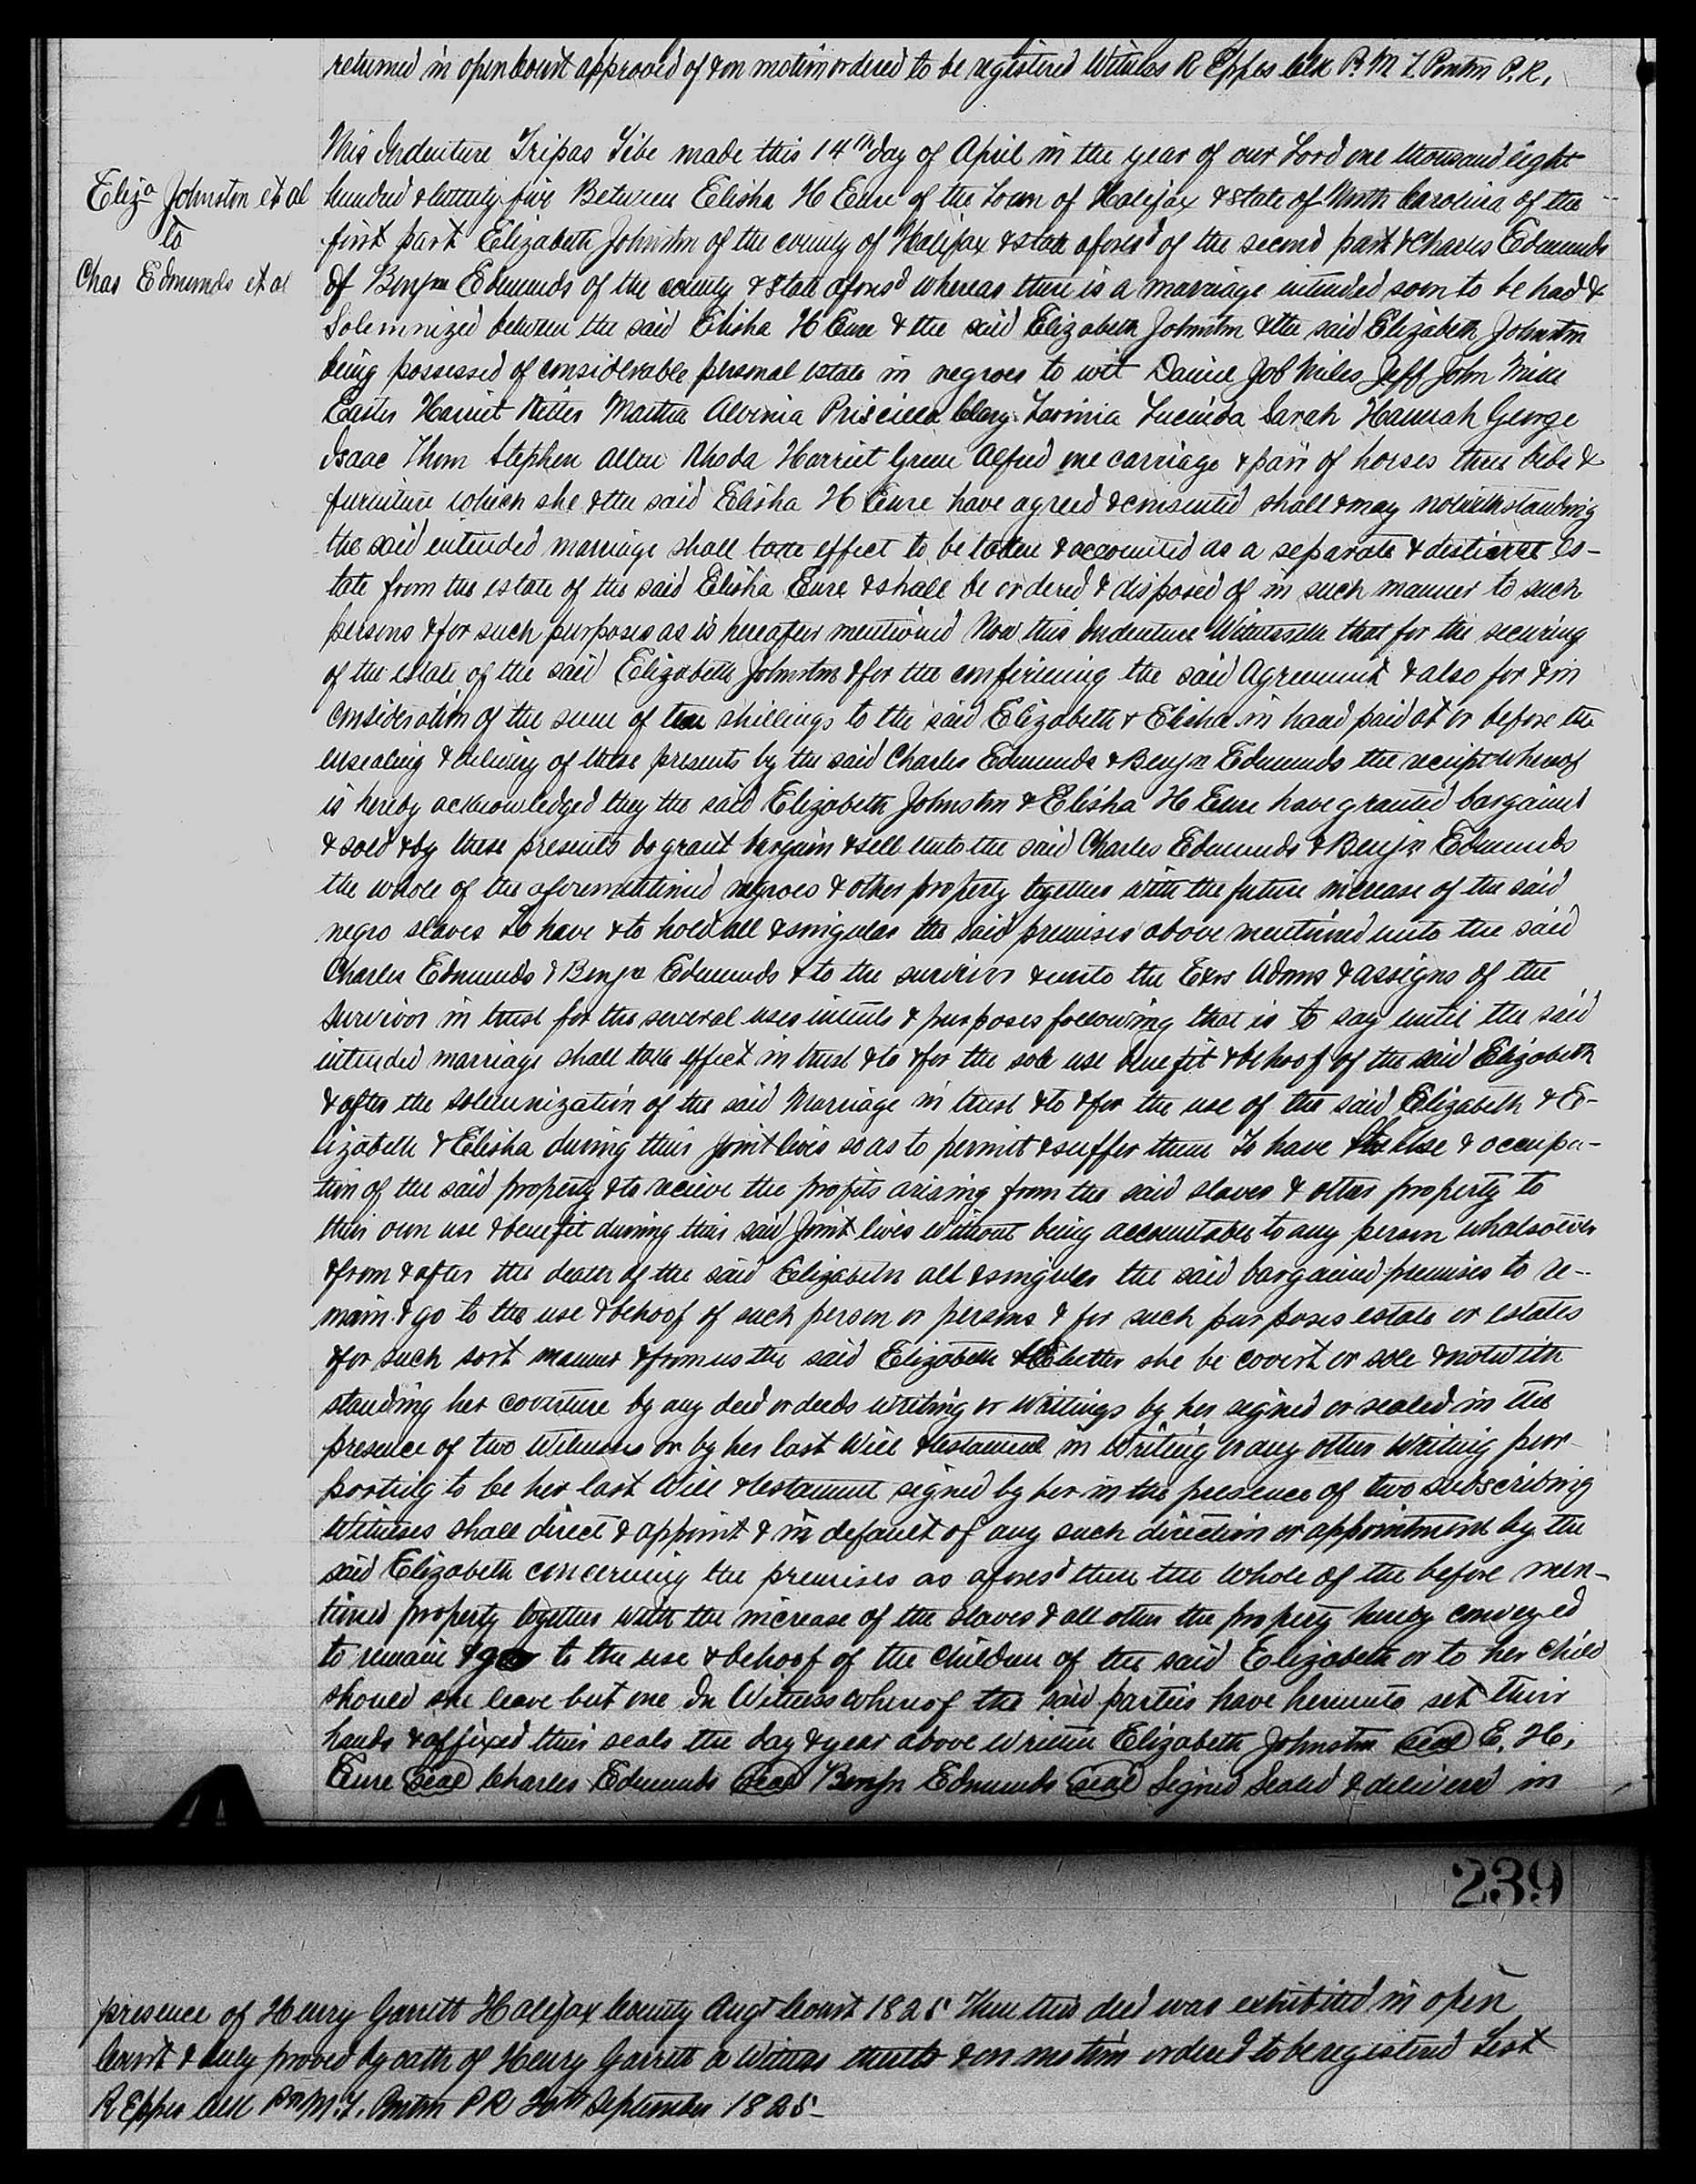 returned in open Court approved of & on motion ordered to be registered Witness R Eppes Clk Pr M T Ponton P.R.
This Indenture Tripas Tibe made this 14th day of April in the year of our Lord one thousand eight
Eliza Johnston et al
to
Chas Edmunds et al
hundred & twenty five Between Elisha H Eure of the Town of Halifax & State of North Carolina of the
first part Elizabeth Johnston of the county of Halifax & state aforesd of the second part & Charles Edmunds
of Benjn Edmunds of the county & State aforesd whereas there is a marriage intended soon to be had &
Solemnized between the said Elisha H Eure & the said Elizabeth Johnston & the said Elizabeth Johnston
being possessed of considerable personal estate in negroes to wit Daniel Job Miles Jeff John Mike
Easter Harriet Kitter Martha Alvinia Priscilla Clary Lavinia Lucinda Sarah Hannah George
Isaac Thom Stephen Allen Rhoda Harriet Green Alfred one carriage & pair of horses three beds &
furniture which she & the said Elisha H Eure have agreed & consented shall & may notwithstanding
the said intended marriage shall take effect to be taken & accounted as a separate & distinct Es-
tate from the estate of the said Elisha Eure & shall be ordered & disposed of in such manner to such
persons & for such purposes as is hereafter mentioned Now this Indenture Witnesseth that for the securing
of the estate of the said Elizabeth Johnston & for the confirming the said Agreement & also for & in
consideration of the sum of ten shillings to the said Elizabeth & Elisha in hand paid at or before the
ensealing & delivery of these presents by the said Charles Edmunds & Benjn Edmunds the receipt whereof
is hereby acknowledged they the said Elizabeth Johnston & Elisha H Eure have granted bargained
& sold & by these presents do grant bargain & sell unto the said Charles Edmunds & Benjn Edmunds
the whole of the aforementioned negroes & other property together with the future increase of the said
negro slaves To have & to hold all & singular the said premises above mentioned unto the said
Charles Edmunds & Benjn Edmunds & to the survivor & unto the Exrs Admrs & assigns of the
survivor in trust for the several uses intents & purposes following that is to say until the said
intended marriage shall take effect in trust & to & for the sole use benefit & behoof of the said Elizabeth
& after the solemnization of the said Marriage in trust & to & for the use of the said Elizabeth & E-
lizabeth & Elisha during their joint lives so as to permit & suffer them To have the use & occupa-
tion of the said property & to recieve the profits arising from the said slaves & other property to
their own use & benefit during their said Joint lives without being accountable to any person whatsoever
& from & after the death of the said Elizabeth all & singular the said bargained premises to re-
main & go to the use & behoof of such person or persons & for such purposes estate or estates
& for such sort manner & from us the said Elizabeth & Whether she be covert or sole & notwith
standing her coverture by any deed or deeds writing or writings by her signed or sealed in the
presence of two Witnesses or by her last Will & testament in Writing or any other Writing pur-
porting to be her last Will & testament signed by her in the presence of two subscribing
Witnesses shall direct & appoint & in default of any such direction or appointment by the
said Elizabeth concerning the premises as aforesd then the Whole of the before men-
tioned property together with the increase of the slaves & all other the property hereby conveyed
to remain & go to the use & behoof of the children of the said Elizabeth or to her child
should she leave but one In Witness whereof the said parties have hereunto set their
hands & affixed their seals the day & year above written Elizabeth Johnston seal E. H.
Eure seal Charles Edmunds seal Benjn Edmunds seal Signed Sealed & delivered in
239
presence of Henry Garrett Halifax County Augt Court 1825 Then this deed was exhibited in open
Court & duly proved by oath of Henry Garrett a Witness thereto & on motion ordered to be registered Test
R Eppes Clk Pr M. T. Ponton PR 20th September 1825-